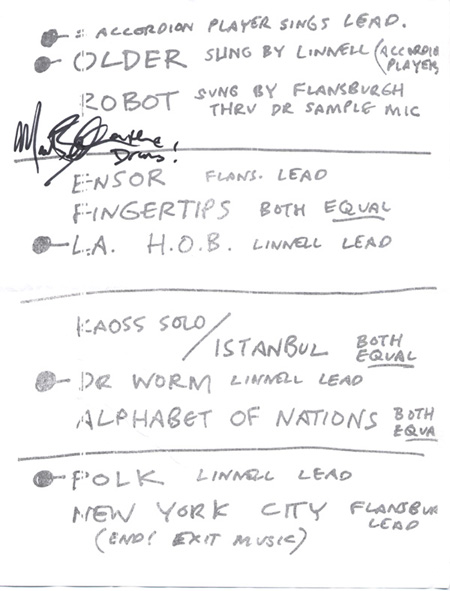 = ACCORDION PLAYER SINGS LEAD.
OLDER SUNG BY LINNELL (ACCORDIO
PLAYER)
ROBOT SUNG BY FLANSBURGH
THRU DR SAMPLE MIC
Drums!
ENSOR FLANS. LEAD
FINGERTIPS BOTH EQUAL
L.A. H.O.B. LINNELL LEAD
KAOSS SOLO/
ISTANBUL BOTH
EQUAL
DR WORM LINNELL LEAD
ALPHABET OF NATIONS BOTH
EQUA
POLK LINNELL LEAD
NEW YORK CITY FLANSBUR
LEAD
(END! EXIT MUSIC)